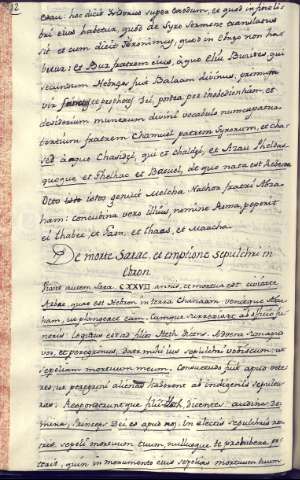 2
Esau. hoc dicit Isidorus super Exodum, et quod in fine li
bri eius habetur, quod de Syro sermone translatus
sit et cum dicit Jeronimus, quod in Ebreo non ha
betur: et Buz fratrem eius, a quo Eliu Buzites qui
secundum Hebreos fuit Balaam divinus, primum
vir et propheta Dei, postea per inobedientiam, et
desiderium munerum divini vocabulo nuncupatur
tertium fratrem Chamuel patrem Syrorum, et cha-
sed a quo Chasdei, qui et chaldei, et Azau Pheldas
quoque et Jhedlac et Batuel, de quo nata est Rebecca
Octo istos genuit Melcha Nachor fratri Abra-
ham: concubina vero illius, nomine Roma, peperit
ei thabee, et Gaon, et thaas, et Maacha.
De morte Sarae, et emptione sepulchri in
Ebron
Vixit autem Sara CXXVII annis, et mortua est civitate
Arbee, quae est Hebron in terra Chanaam venitque Abra
ham, ut plangeret eam, cumque surrexisset ab officio fu
neris locutus est ad filios Heth dicens. Advena sum apud
vos, et peregrinus, date mihi ius sepulchri vobiscum, ut
sepeliam mortuum meum. Consuetudo fuit apud vete
res, ut peregrini haberent ab indigenis sepultu
ras: Responderuntque filii Heth, dicentes: audi nos do
mine, Princeps Dei es apud nos: In electis sepulchris nos
tris sepeli mortuum tuum, nullusque te prohibere po
terit, quin in monumento eius sepelias mortuum tuum